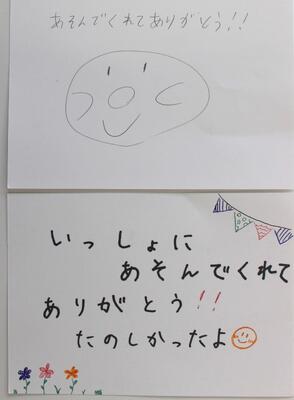 あそんでくれてありがとう!!
いっしょに
あそんでくれて
ありがとう!!
たのしかったよ